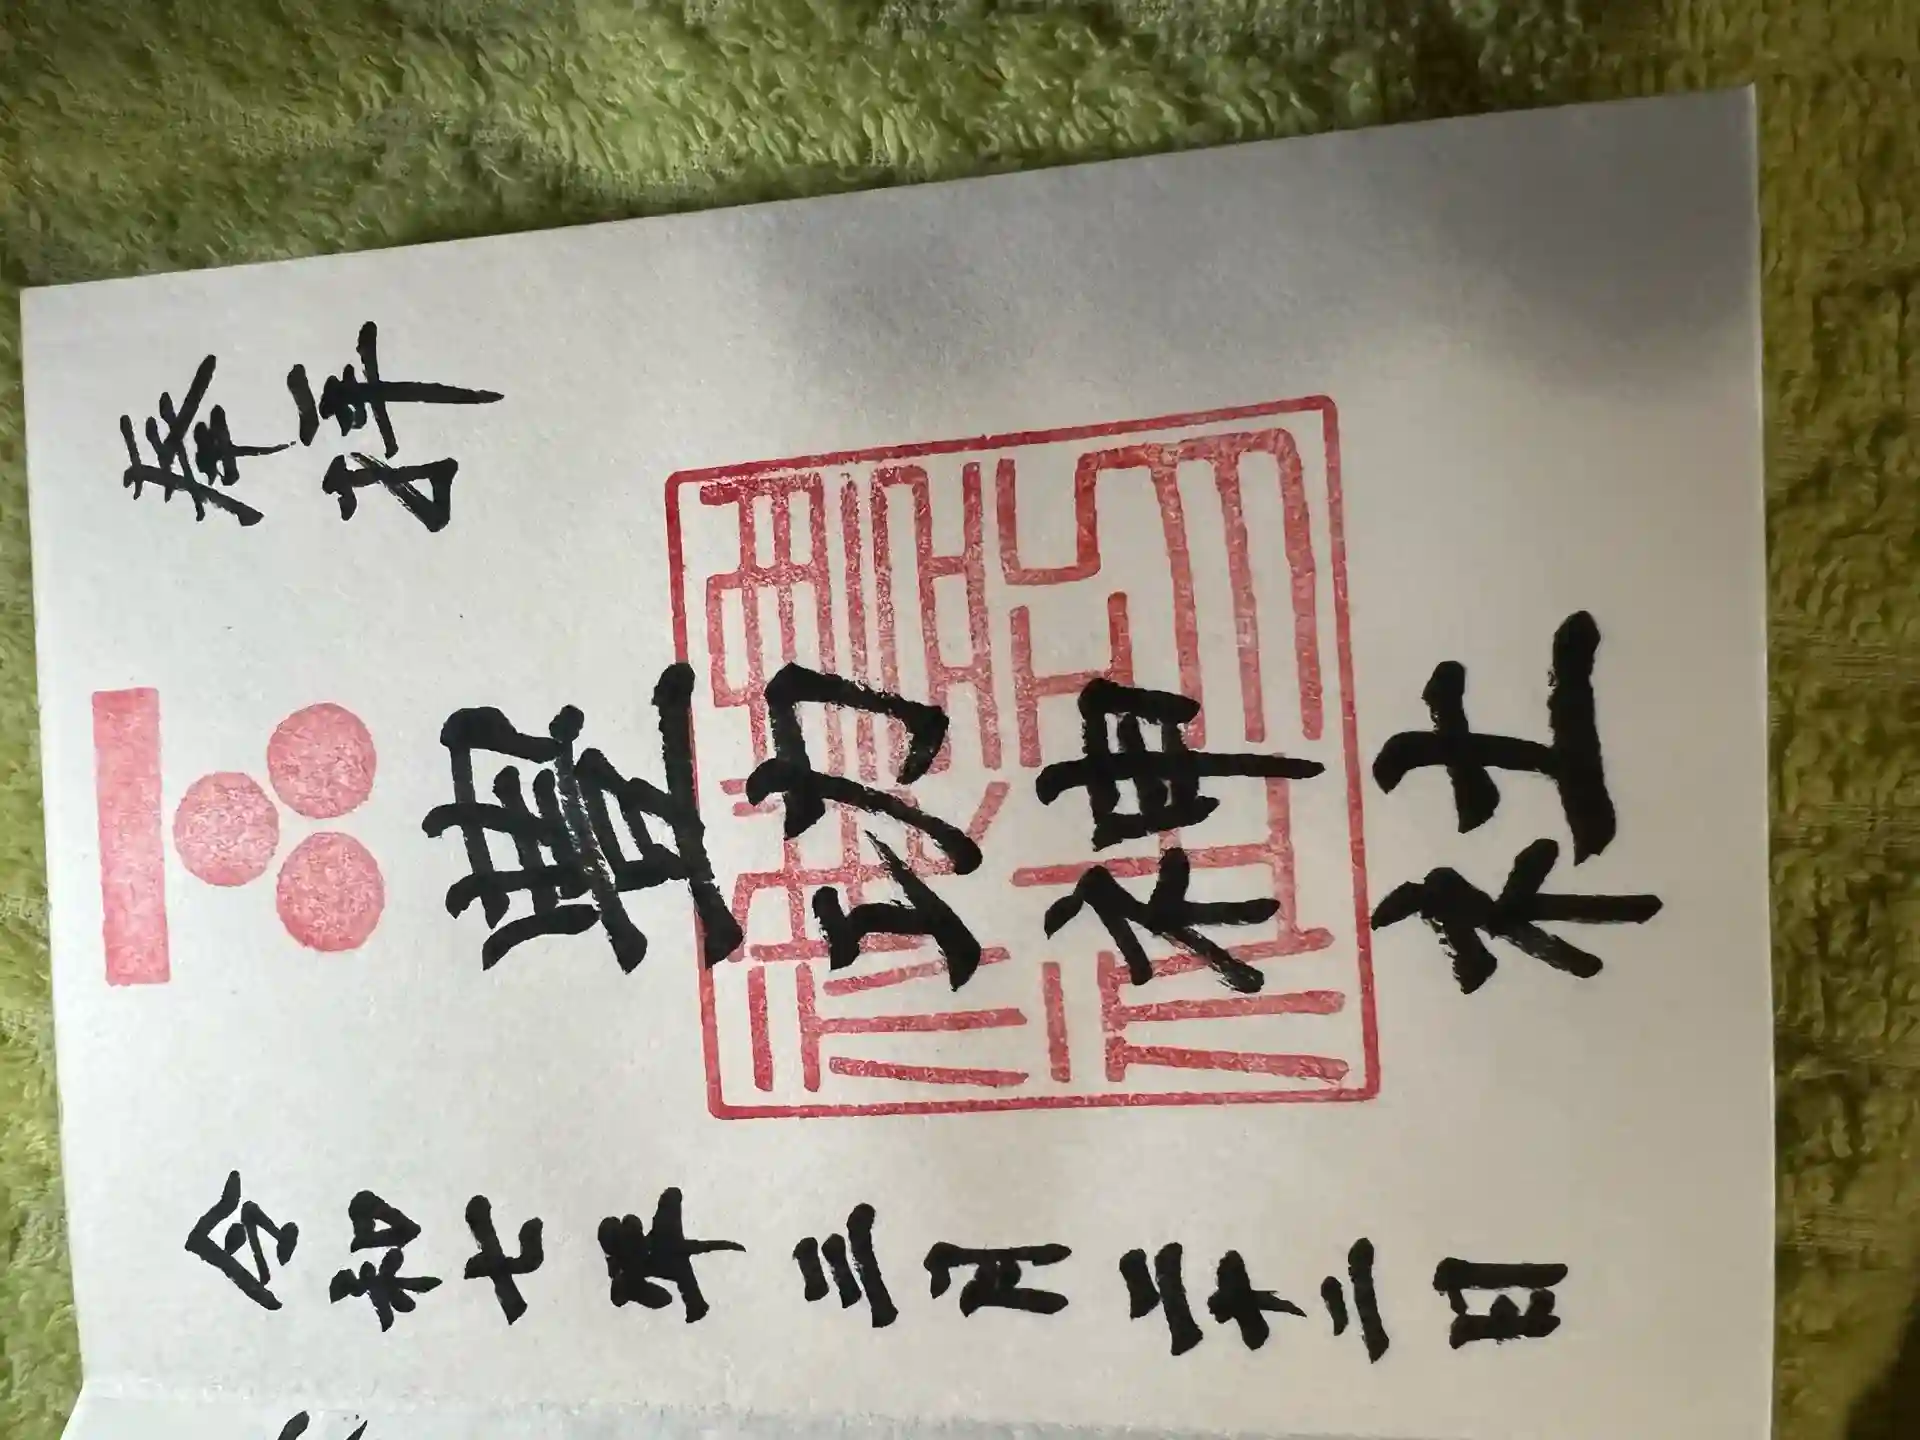 奉拝
豐功神社
令和七年三月二十二日